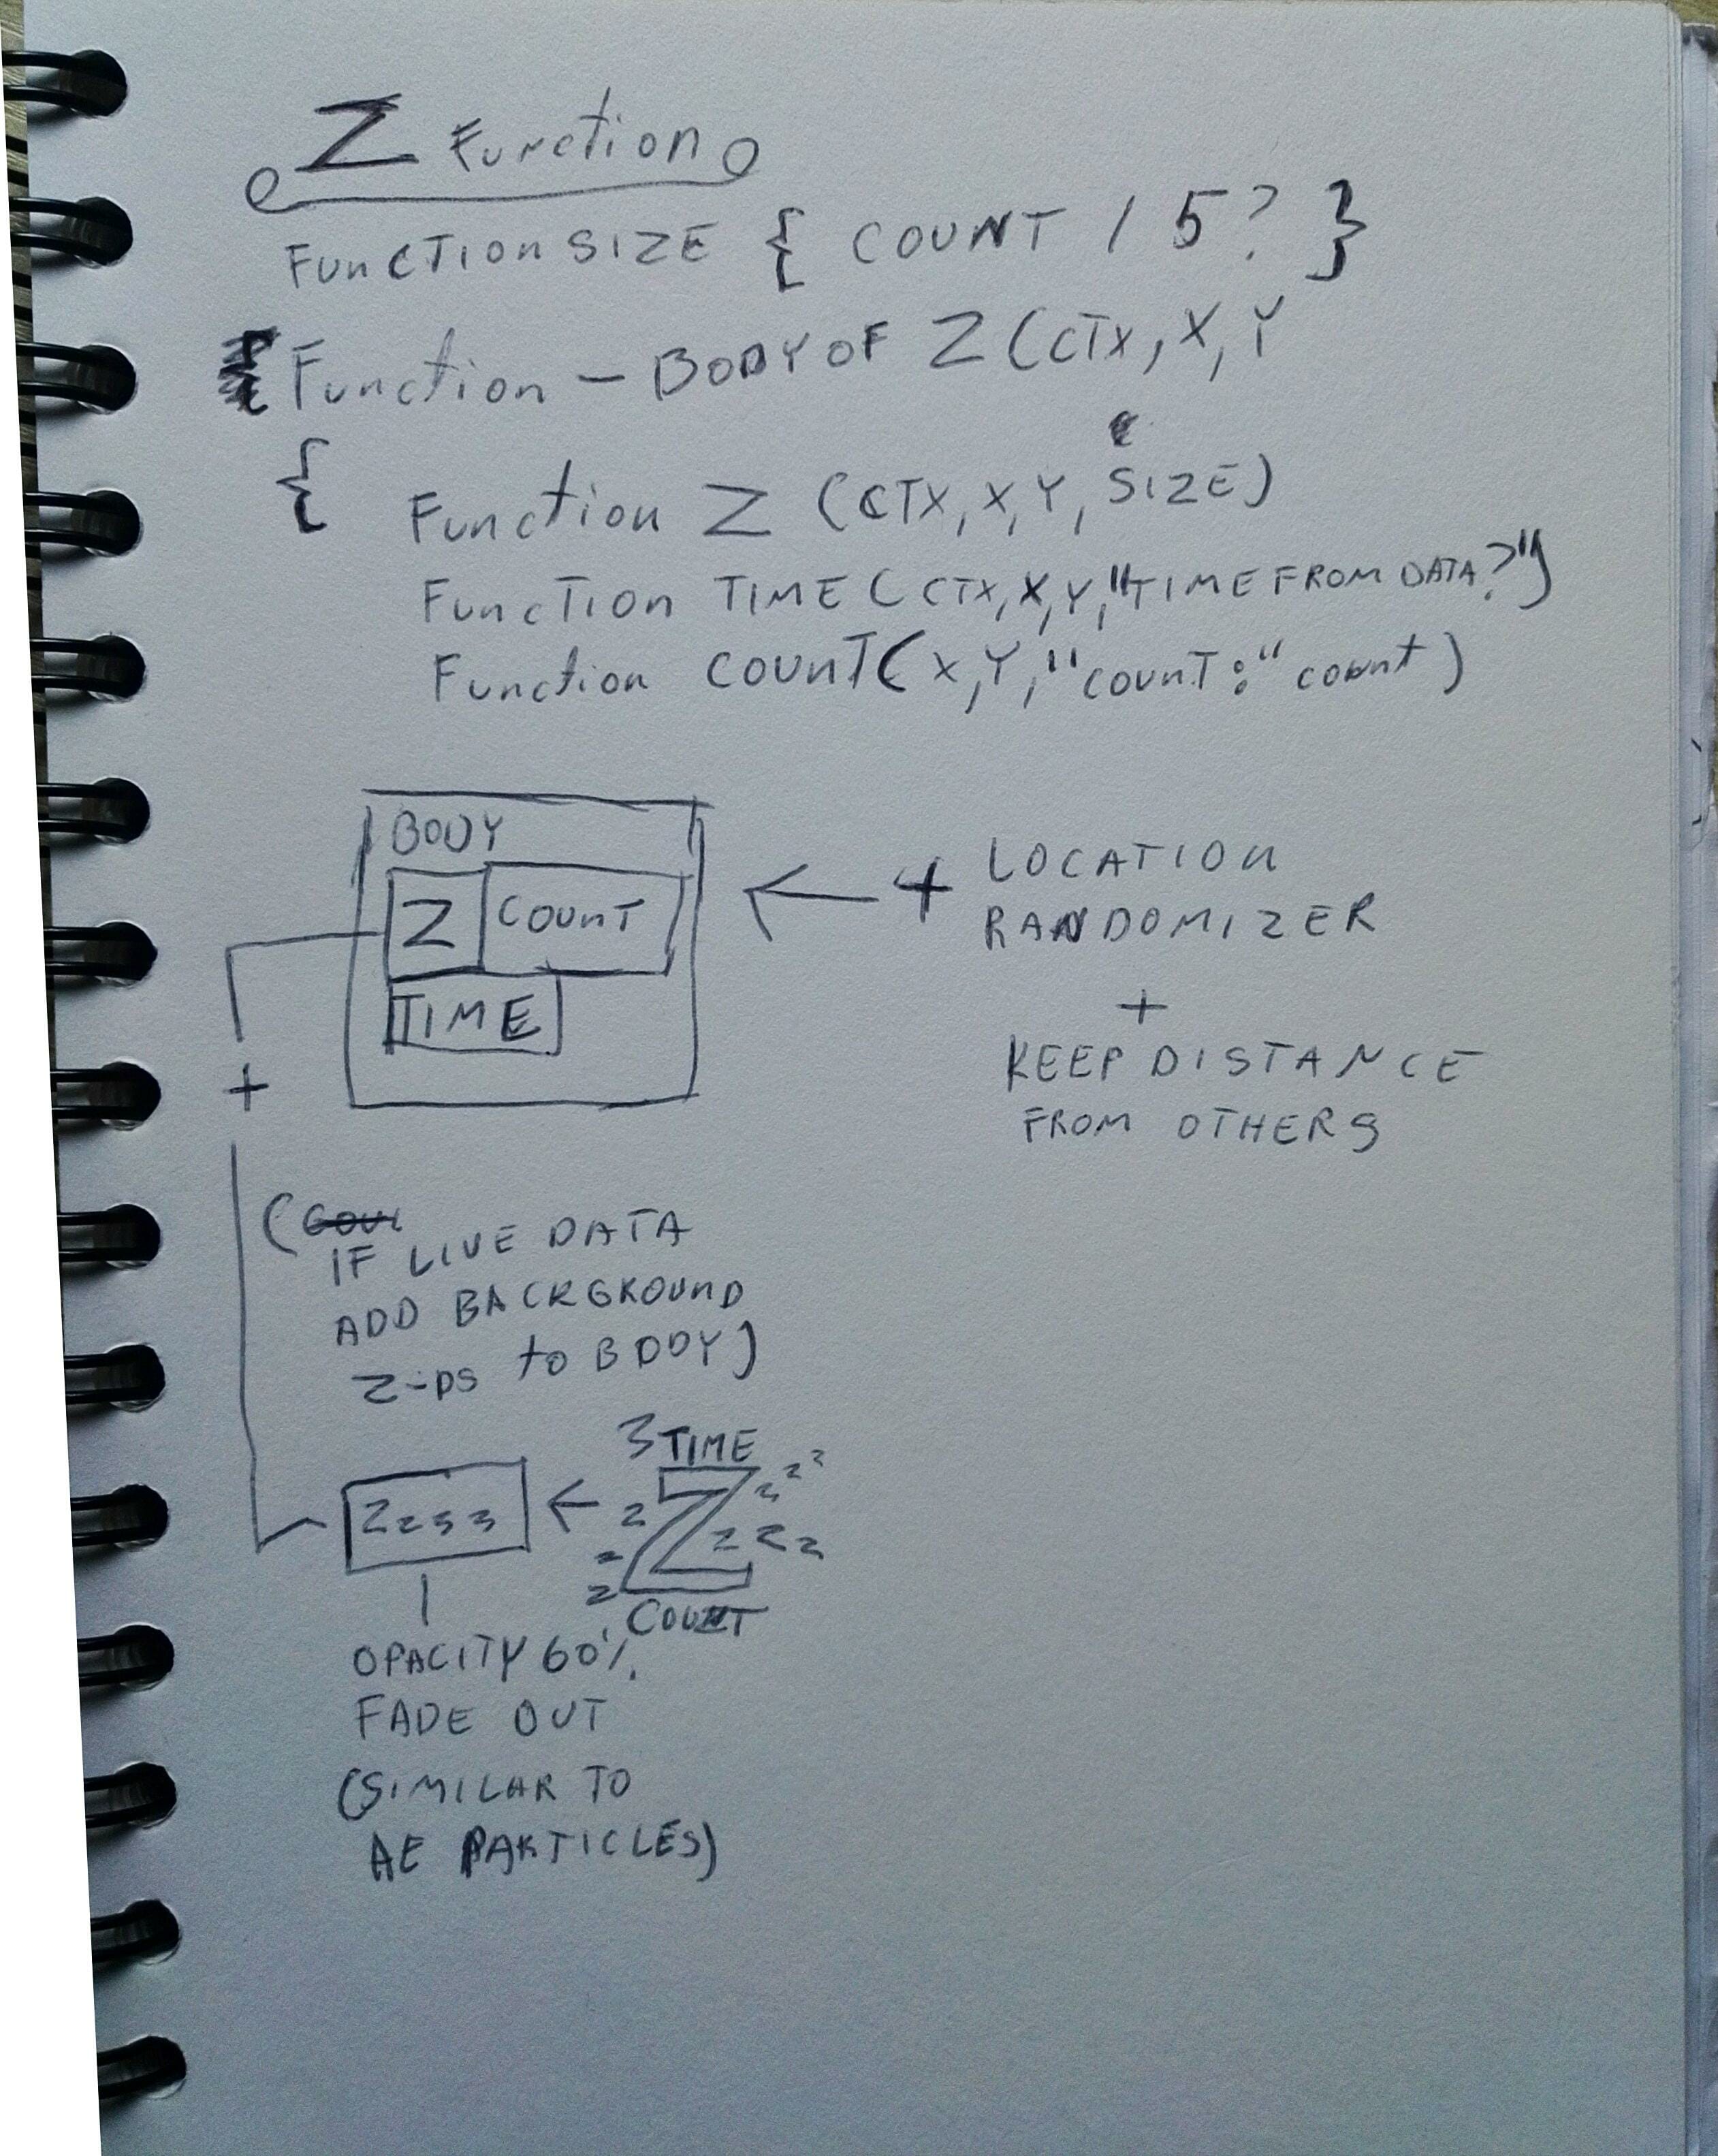 Z Function
FUNCTION SIZE { COUNT / 5? }
Function – BODY OF Z (CTX, X, Y
{ Function Z (CTX, X, Y, SIZE)
Function TIME (CTX, X, Y, "TIME FROM DATA?")
Function COUNT (X, Y, "COUNT:" count)
BODY
Z COUNT
TIME
+ LOCATION
RANDOMIZER
+
KEEP DISTANCE
FROM OTHERS
+
(
IF LIVE DATA
ADD BACKGROUND
Z-PS to BODY)
3 TIME
z z
Z z z z z
z
z
COUNT
OPACITY 60%
FADE OUT
(SIMILAR TO
AE PARTICLES)